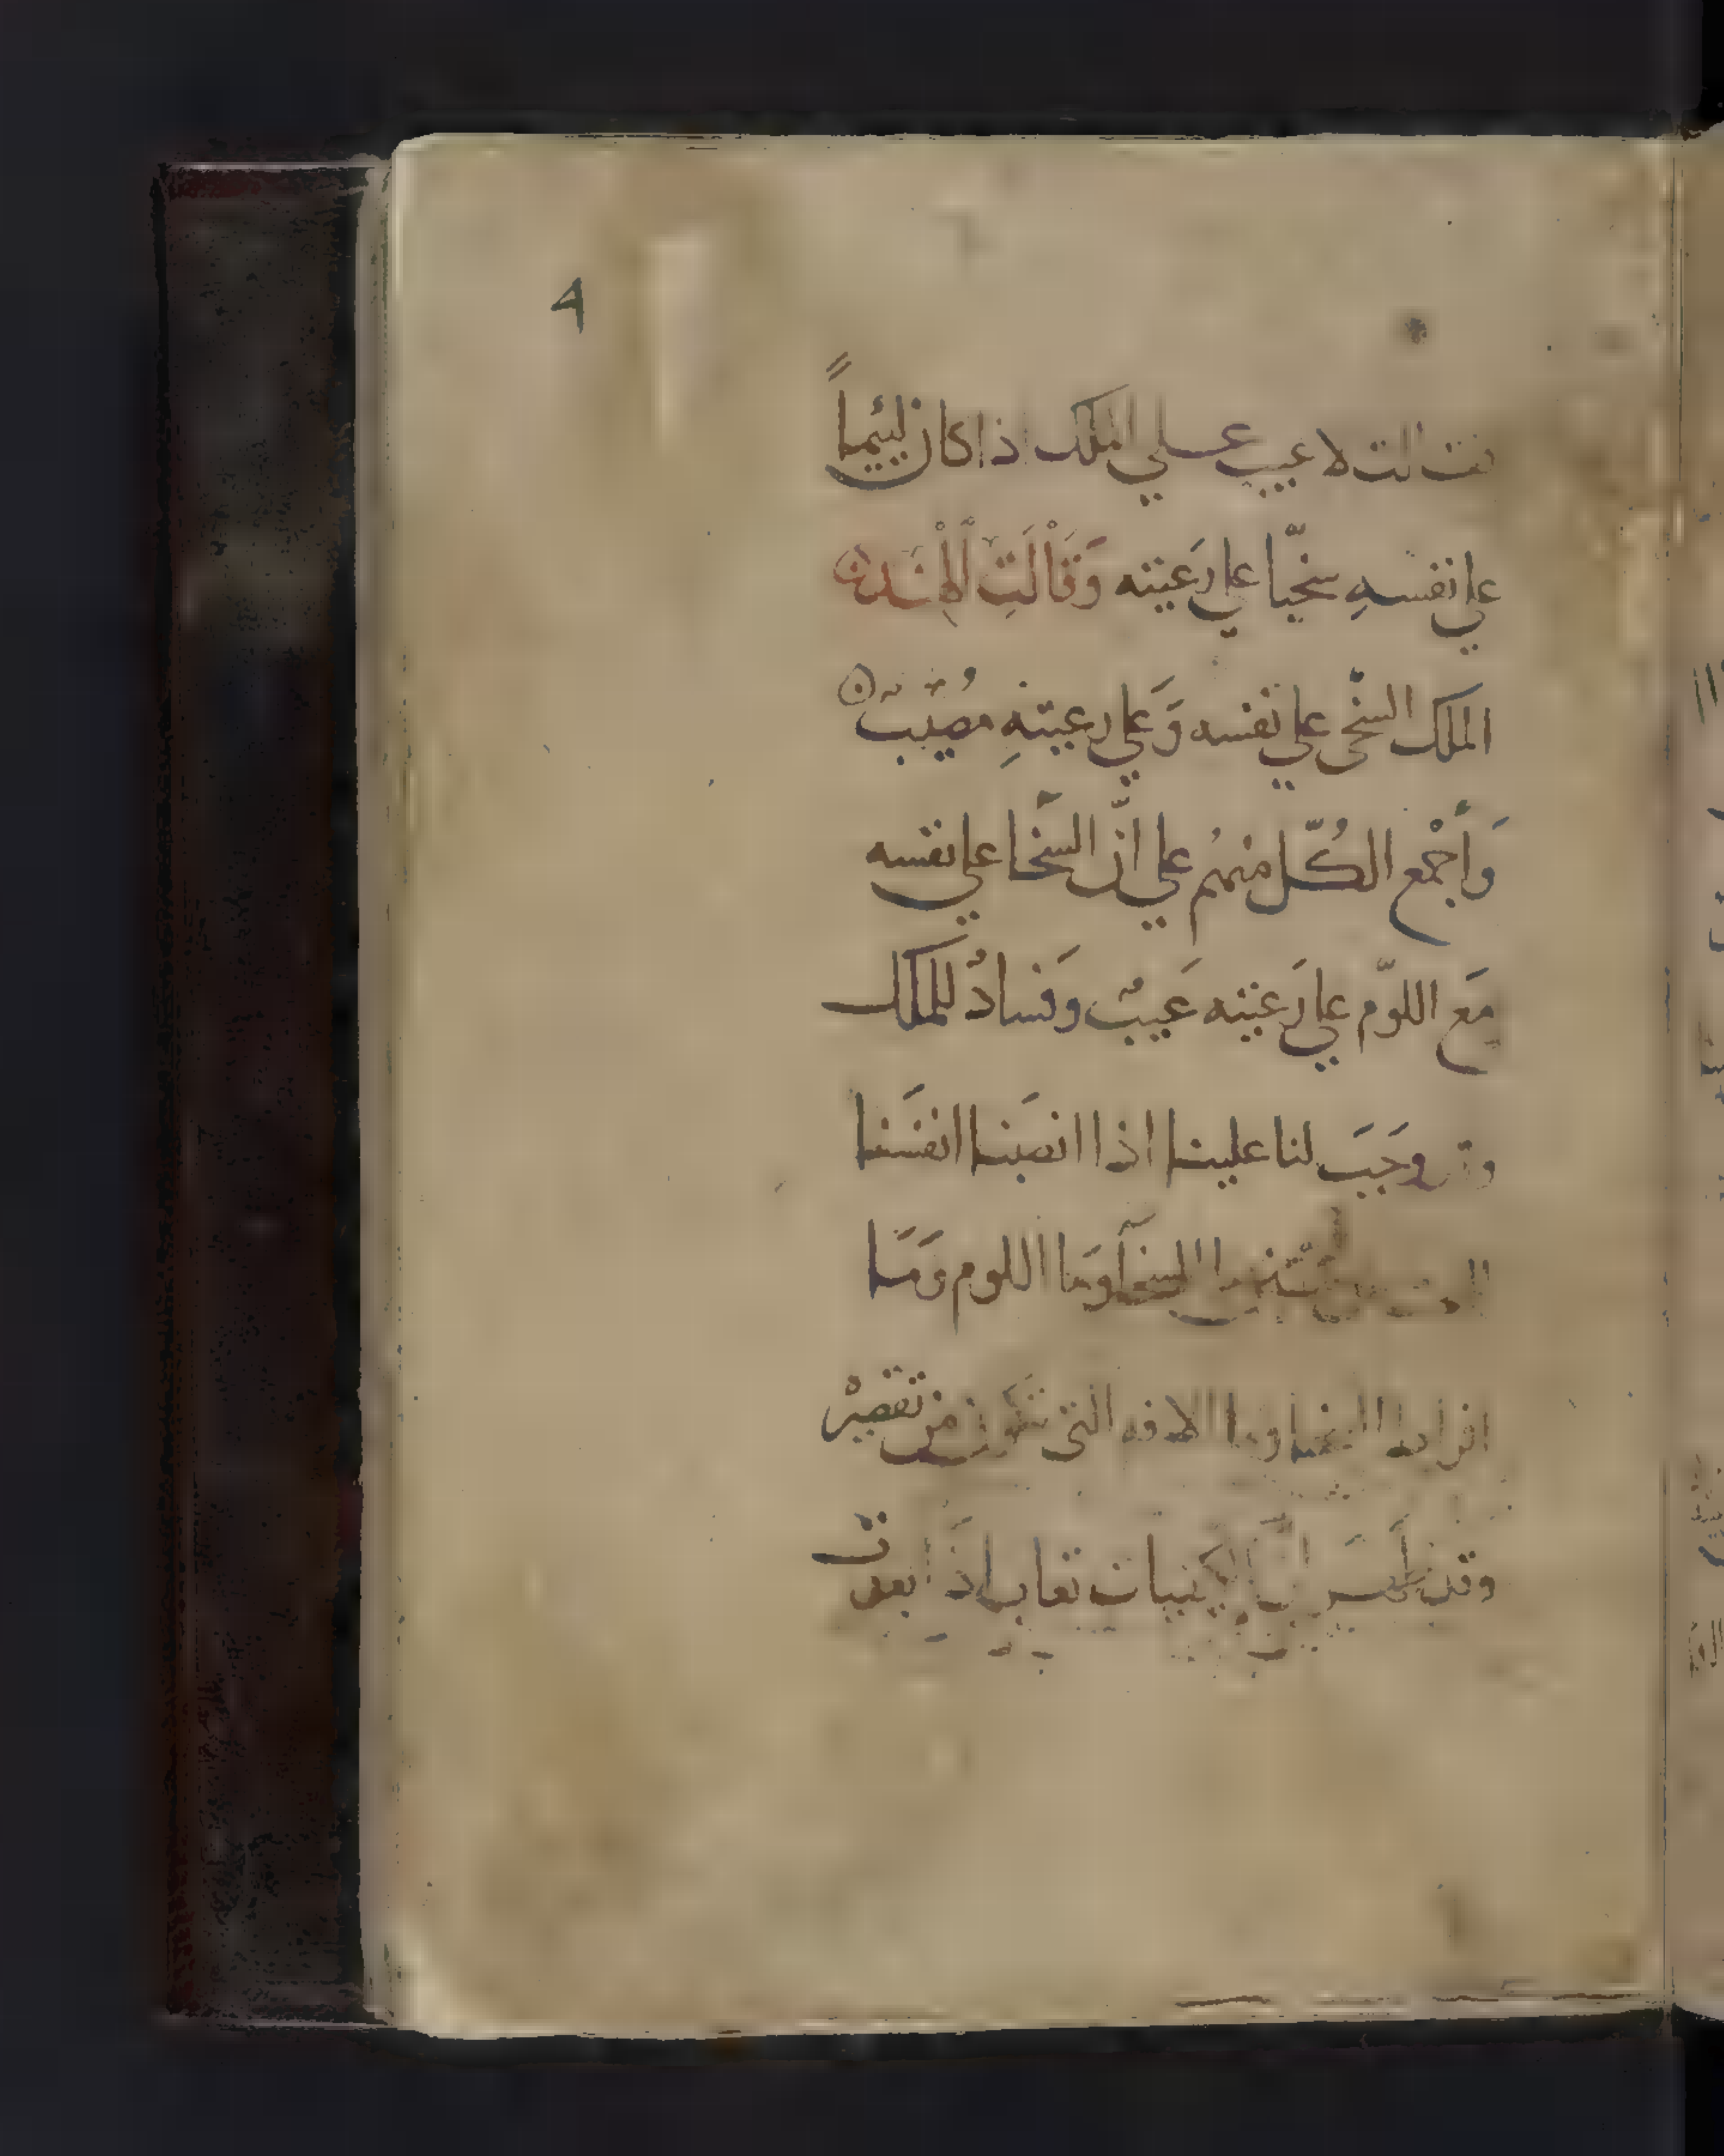 4
فقالت لا عيب علي الملك اذا كان لئيماً
علي نفسهِ سخيّا علي رَعيته وَقَالَتِ الْهِنْد
الملك السخي علي نفسه وَعلي رعيتهِ مصيبٌ
وَأَجْمع الكُلّ منهُم علي انَّ السَّخا علي نفسه
مَع اللوّم علي رَعيته عَيبٌ وَفسادٌ للملك
وَجَبَ لنا علينا اذا انصَبنا انفسَنا
السخآ وَما اللوم وَمَا
افراط السخا وما الافه التي تكون من تقصير
وقد ان الكيفيات تعاب اذا